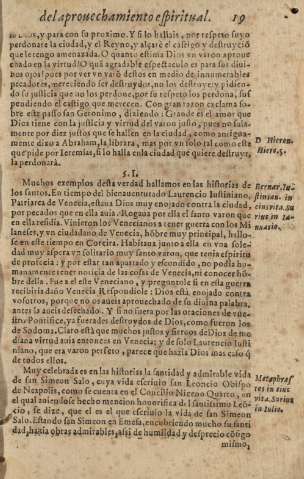 del aprouechamiento espiritual. 19
a Dios, y para con su proximo. Y si lo hallais, por respeto suyo
perdonare la ciudad, y el Reyno, y alçaré el castigo y destruyciõ
que le tengo amenazada. O quanto estima Dios vn varon aprouechado
en la virtud! O quã agradable espectaculo es para sus diuinos
ojos! pues por ver vn varõ destos en medio de innumerables
pecadores, mereciendo ser destruydos, no los destruye: y pidiendo
su justicia que no los perdone, por su respeto los perdona, suspendiendo
el castigo que merecen. Con gran razon exclama sobre
este passo san Geronimo, diziendo: Grande es el amor que
Dios tiene con la justicia y virtud del varon justo, pues no solamente
por diez justos que se hallen en la ciudad, como antiguamente
dixo a Abraham, la librara, mas por vn solo tal como esta
que pide por Ieremias, si lo halla en la ciudad que quiere destruyr,
la perdonará.
D. Hieron.
Hiere.5.
§. I.
Muchos exemplos desta verdad hallamos en las historias de
los santos. En tiempo del bienauenturado Laurencio Iustiniano,
Patriarca de Venecia, estaua Dios muy enojado contra la ciudad,
por pecados que en ella auia. Rogaua por ella el santo varon que
en ella residia. Vinieron los Venecianos a tener guerra con los Milaneses,
y vn ciudadano de Venecia, hõbre muy principal, hallose
en este tiempo en Corcira. Habitaua junto a ella en vna soledad
muy aspera vn solitario muy santo varon, que tenia espiritu
de profecia: y por estar tan apartado y escondido, no podia humanamente
tener noticia de las cosas de Venecia, ni conocer hõbre
della. Fue a el este Veneciano, y preguntole si en esta guerra
recibiria daño Venecia. Respondiole: Dios está enojado contra
vosotros, porque no os aueis aprouechado de su diuina palabra,
antes la aueis desechado. Y si no fuera por las oraciones de vuestro
Pontifice, ya fuerades destruydos de Dios, como fueron los
de Sodoma. Claro está que muchos justos y sieruos de Dios de mediana
virtud auia entonces en Venecia; y de solo Laurencio Iustiniano,
que era varon perfeto, parece que hazia Dios mas caso q̃
de todos ellos.
Bernar. Iustinian. in
eius vita. Surius in Ianuario.
Muy celebrada es en las historias la santidad y admirable vida
de san Simeon Salo, cuya vida escriuio san Leoncio Obispo
de Neapolis, como se cuenta en el Concilio Niceno Quarto, en
el qual auiendose hecho mencion honorifica de santissimo Leoncio,
se dize, que el es el que escriuio la vida de san Simeon
Salo. Estando san Simeon en Emesa, encubriendo mucho su santidad,
hazia obras admirables, assi de humildad y desprecio cõsigo
Metaphrastes in eius
vita. Surius
in Iulio.
mismo,